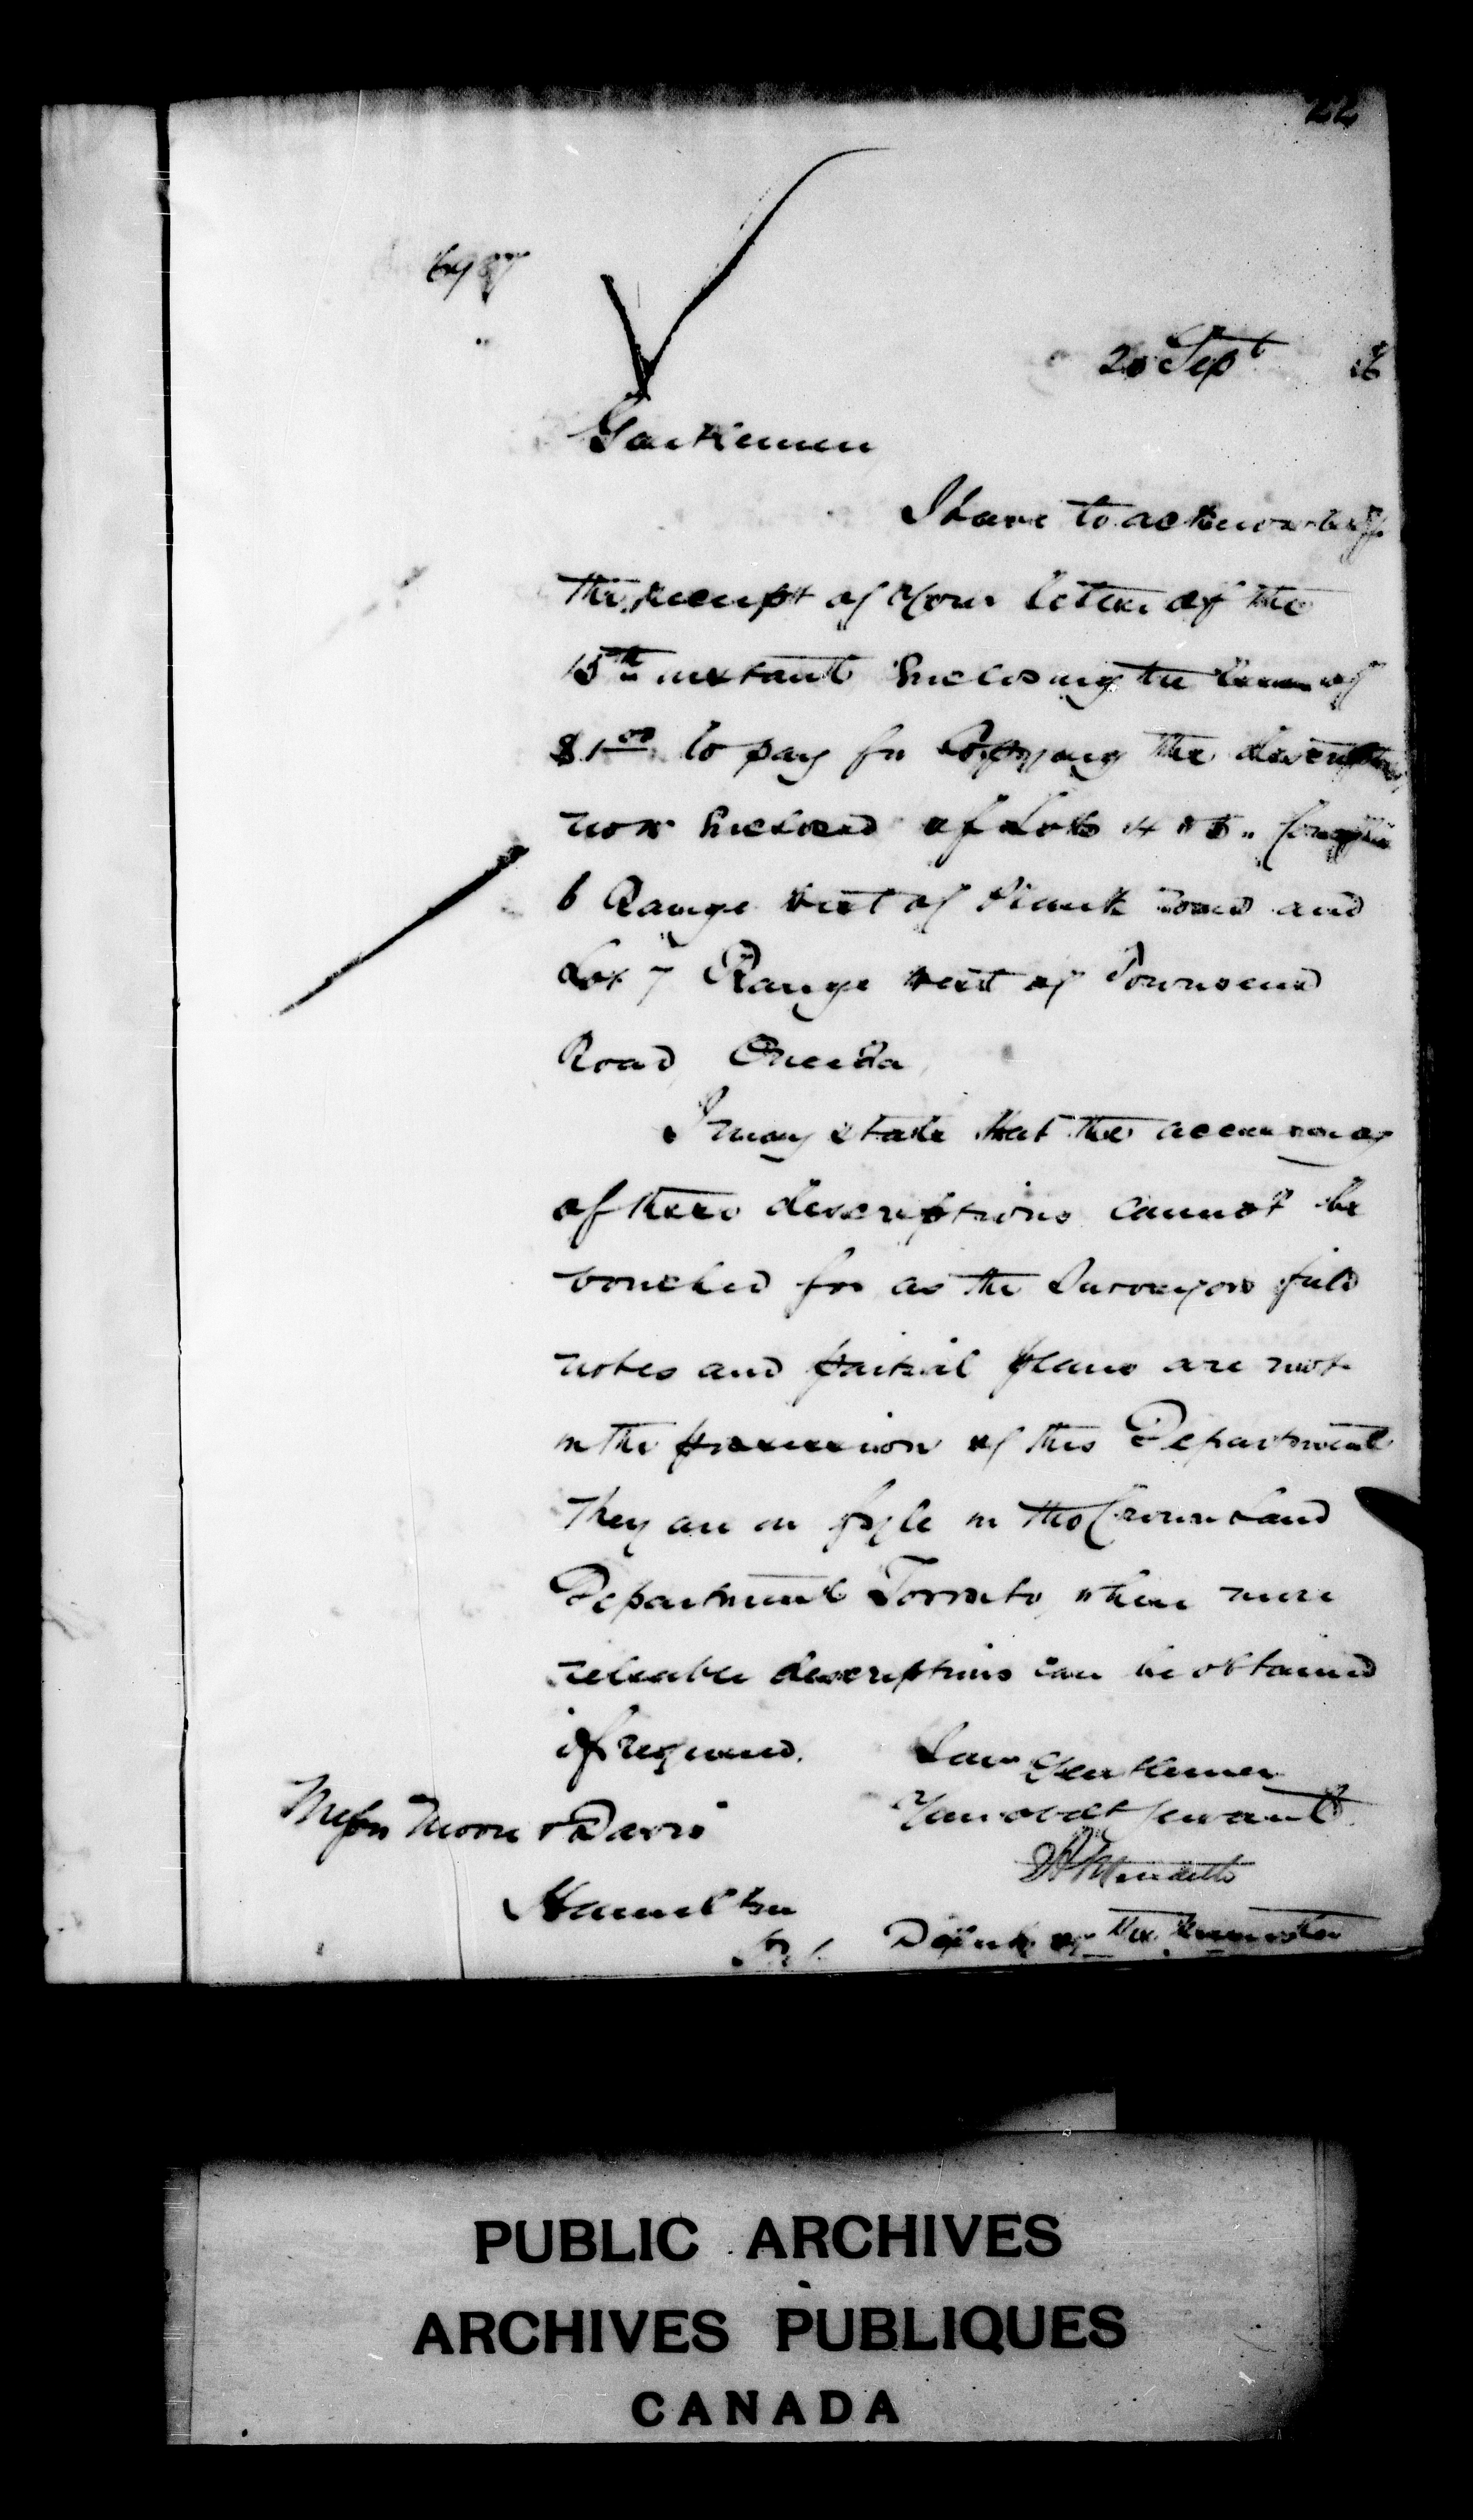 6987
20 Sept 6
Gentlemen
I have to acknowledge
the receipt of your letter of the
15th instant Enclosing the sum of
$1.00 to pay for Copying the description
now Enclosed of Lots 4 & 5
6 Range West of Plank road and
Lot 7 Range West of Townsend
Road, Oneida,
I may state that the accuracy
of these descriptions cannot be
vouched for as the Surveyors field
notes and partial plans are not
in the possession of this Department
They are on fyle in the Crown Land
Department Toronto, where more
reliable descriptions can be obtained
if required.
I am Gentlemen
Your obdt servant
Messrs Moore & Davis
Meredith
Hamilton
Deputy of the Minister
PUBLIC ARCHIVES
ARCHIVES PUBLIQUES
CANADA